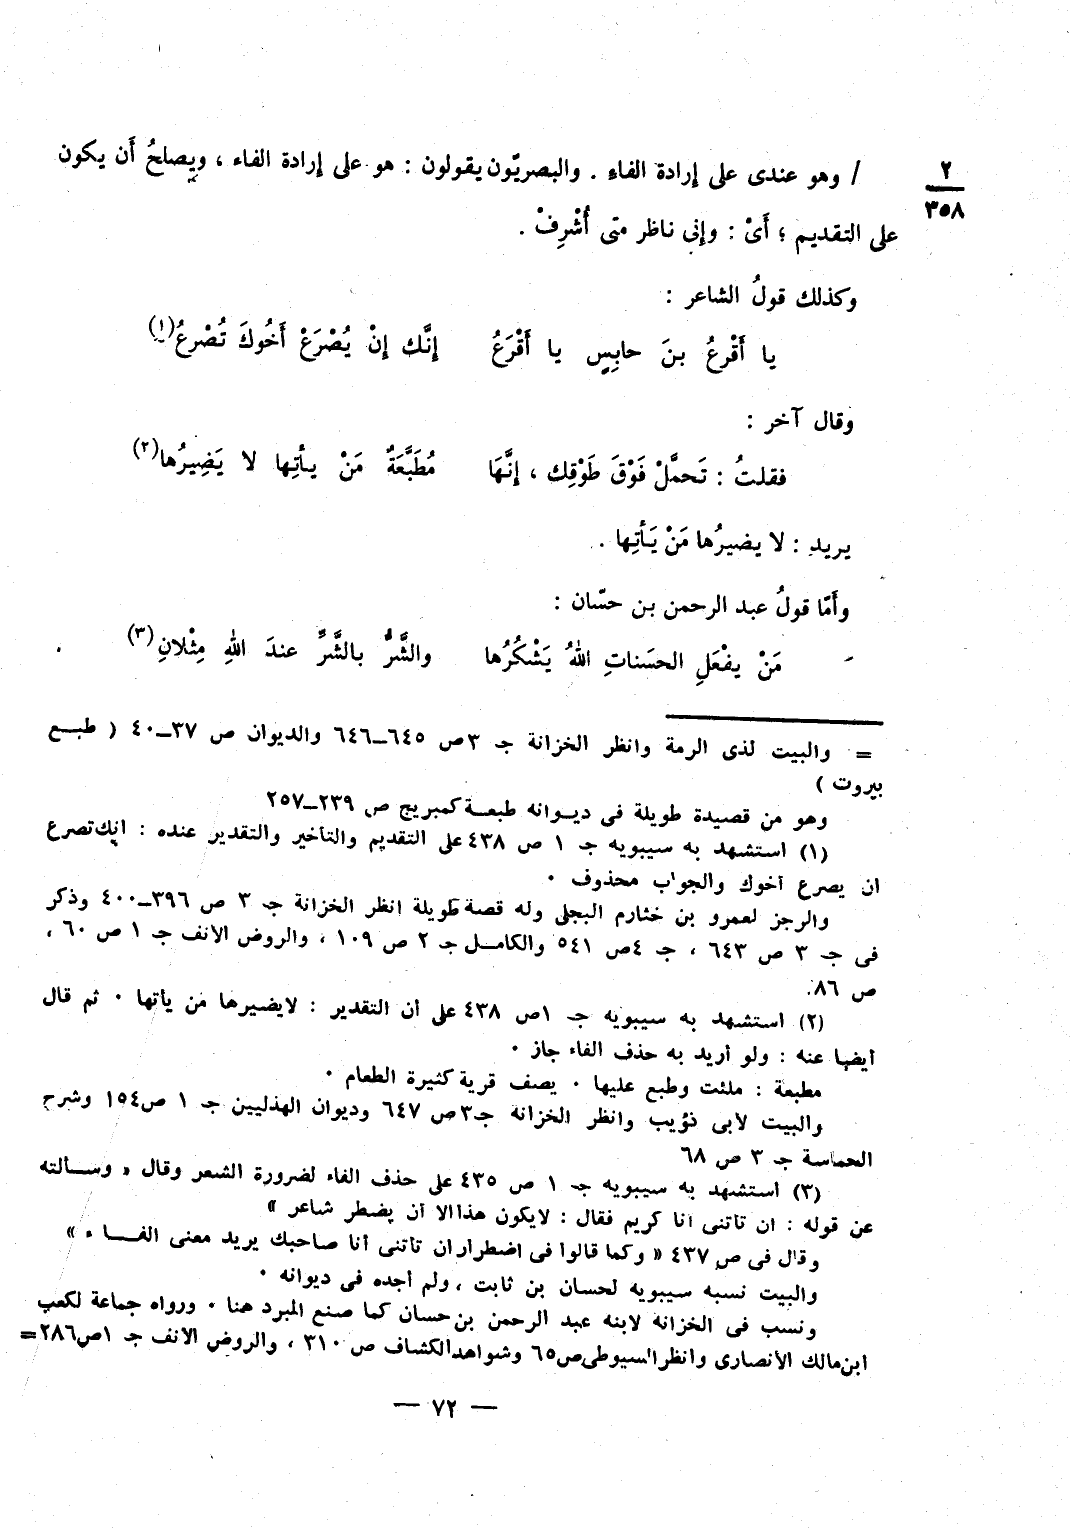 ٢
٣٥٨
/ وهو عندى على إرادة الفاء . والبصريّون يقولون : هو على إرادة الفاء ، ويصلحُ أَن يكون
على التقديم ؛ أَىْ : وإنى ناظر متى أُشْرِفْ .
وكذلك قولُ الشاعر :
يا أَقْرعُ بنَ حابِسٍ يا أَقْرَعُ إنَّك إنْ يُصْرَعْ أَخُوكَ تُصْرعُ(١)
وقال آخر :
فقلتُ : تَحمَّلْ فَوْقَ طَوْقِك ، إنَّهَا مُطَبَّعَةٌ مَنْ يأتِها لا يَضِيرُها(٢)
يريد : لا يضيرُها مَنْ يَأتِها .
وأَمّا قولُ عبد الرحمن بن حسّان :
مَنْ يفْعَلِ الحسَناتِ اللهُ يَشْكُرُها والشَّرُّ بالشَّرِّ عندَ اللهِ مِثْلانِ(٣)
= والبيت لذى الرمة وانظر الخزانة جـ ٣ ص ٦٤٥–٦٤٦ والديوان ص ٣٧–٤٠ ( طبـــع
بيروت )
وهو من قصيدة طويلة فى ديـوانه طبعـة كمبريج ص ٢٣٩–٢٥٧
(١) استشهد به سيبويه جـ ١ ص ٤٣٨ على التقديم والتأخير والتقدير عنده : انك تصرع
ان يصرع أخوك والجواب محذوف ٠
والرجز لعمرو بن خثارم البجلى وله قصة طويلة انظر الخزانة جـ ٣ ص ٣٩٦–٤٠٠ وذكر
فى جـ ٣ ص ٦٤٣ ، جـ ٤ ص ٥٤١ والكامـل جـ ٢ ص ١٠٩ ، والروض الانف جـ ١ ص ٦٠ ،
ص ٨٦.
(٢) استشهد به سيبويه جـ ١ ص ٤٣٨ على أن التقدير : لايضيرها من يأتها ٠ ثم قال
أيضا عنه : ولو أريد به حذف الفاء جاز ٠
مطبعة : ملئت وطبع عليها ٠ يصف قرية كثيرة الطعام ٠
والبيت لأبى ذؤيب وانظر الخزانة جـ ٣ ص ٦٤٧ وديوان الهذليين جـ ١ ص ١٥٤ وشرح
الحماسة جـ ٣ ص ٦٨
(٣) استشهد به سيبويه جـ ١ ص ٤٣٥ على حذف الفاء لضرورة الشعر وقال « وسـألته
عن قوله : ان تأتنى أنا كريم فقال : لايكون هذا الا أن يضطر شاعر »
وقال فى ص ٤٣٧ « وكما قالوا فى اضطرار ان تأتنى أنا صاحبك يريد معنى الفـــاء »
والبيت نسبه سيبويه لحسان بن ثابت ، ولم أجده فى ديوانه ٠
ونسب فى الخزانة لابنه عبد الرحمن بن حسان كما صنع المبرد هنا ٠ ورواه جماعة لكعب
ابن مالك الأنصارى وانظر السيوطى ص ٦٥ وشواهد الكشاف ص ٣١٠ ، والروض الأنف جـ ١ ص ٢٨٦ =
— ٧٢ —